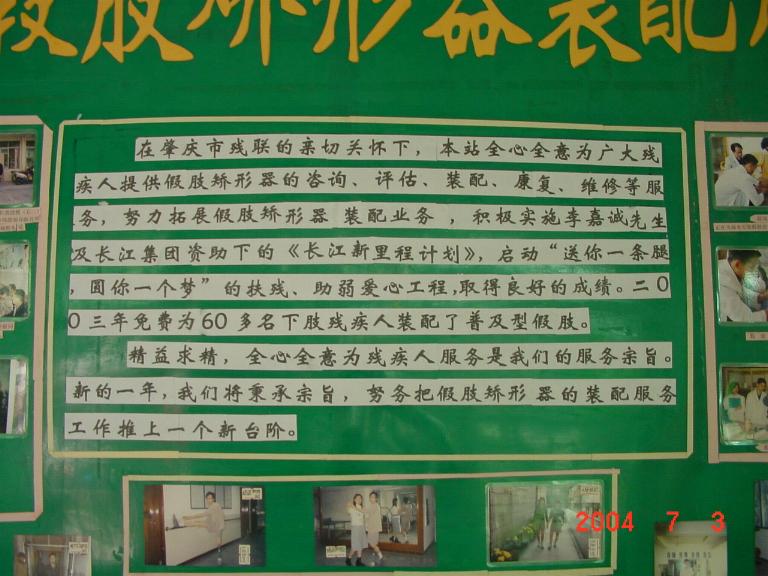 假肢矫形器装配
在肇庆市残联的亲切关怀下，本站全心全意为广大残
疾人提供假肢矫形器的咨询、评估、装配、康复、维修等服
务，努力拓展假肢矫形器装配业务，积极实施李嘉诚先生
及长江集团资助下的《长江新里程计划》，启动“送你一条腿
，圆你一个梦”的扶残、助弱爱心工程,取得良好的成绩。二0
0三年免费为60多名下肢残疾人装配了普及型假肢。
精益求精，全心全意为残疾人服务是我们的服务宗旨。
新的一年，我们将秉承宗旨，努务把假肢矫形器的装配服务
工作推上一个新台阶。
2004 7 3